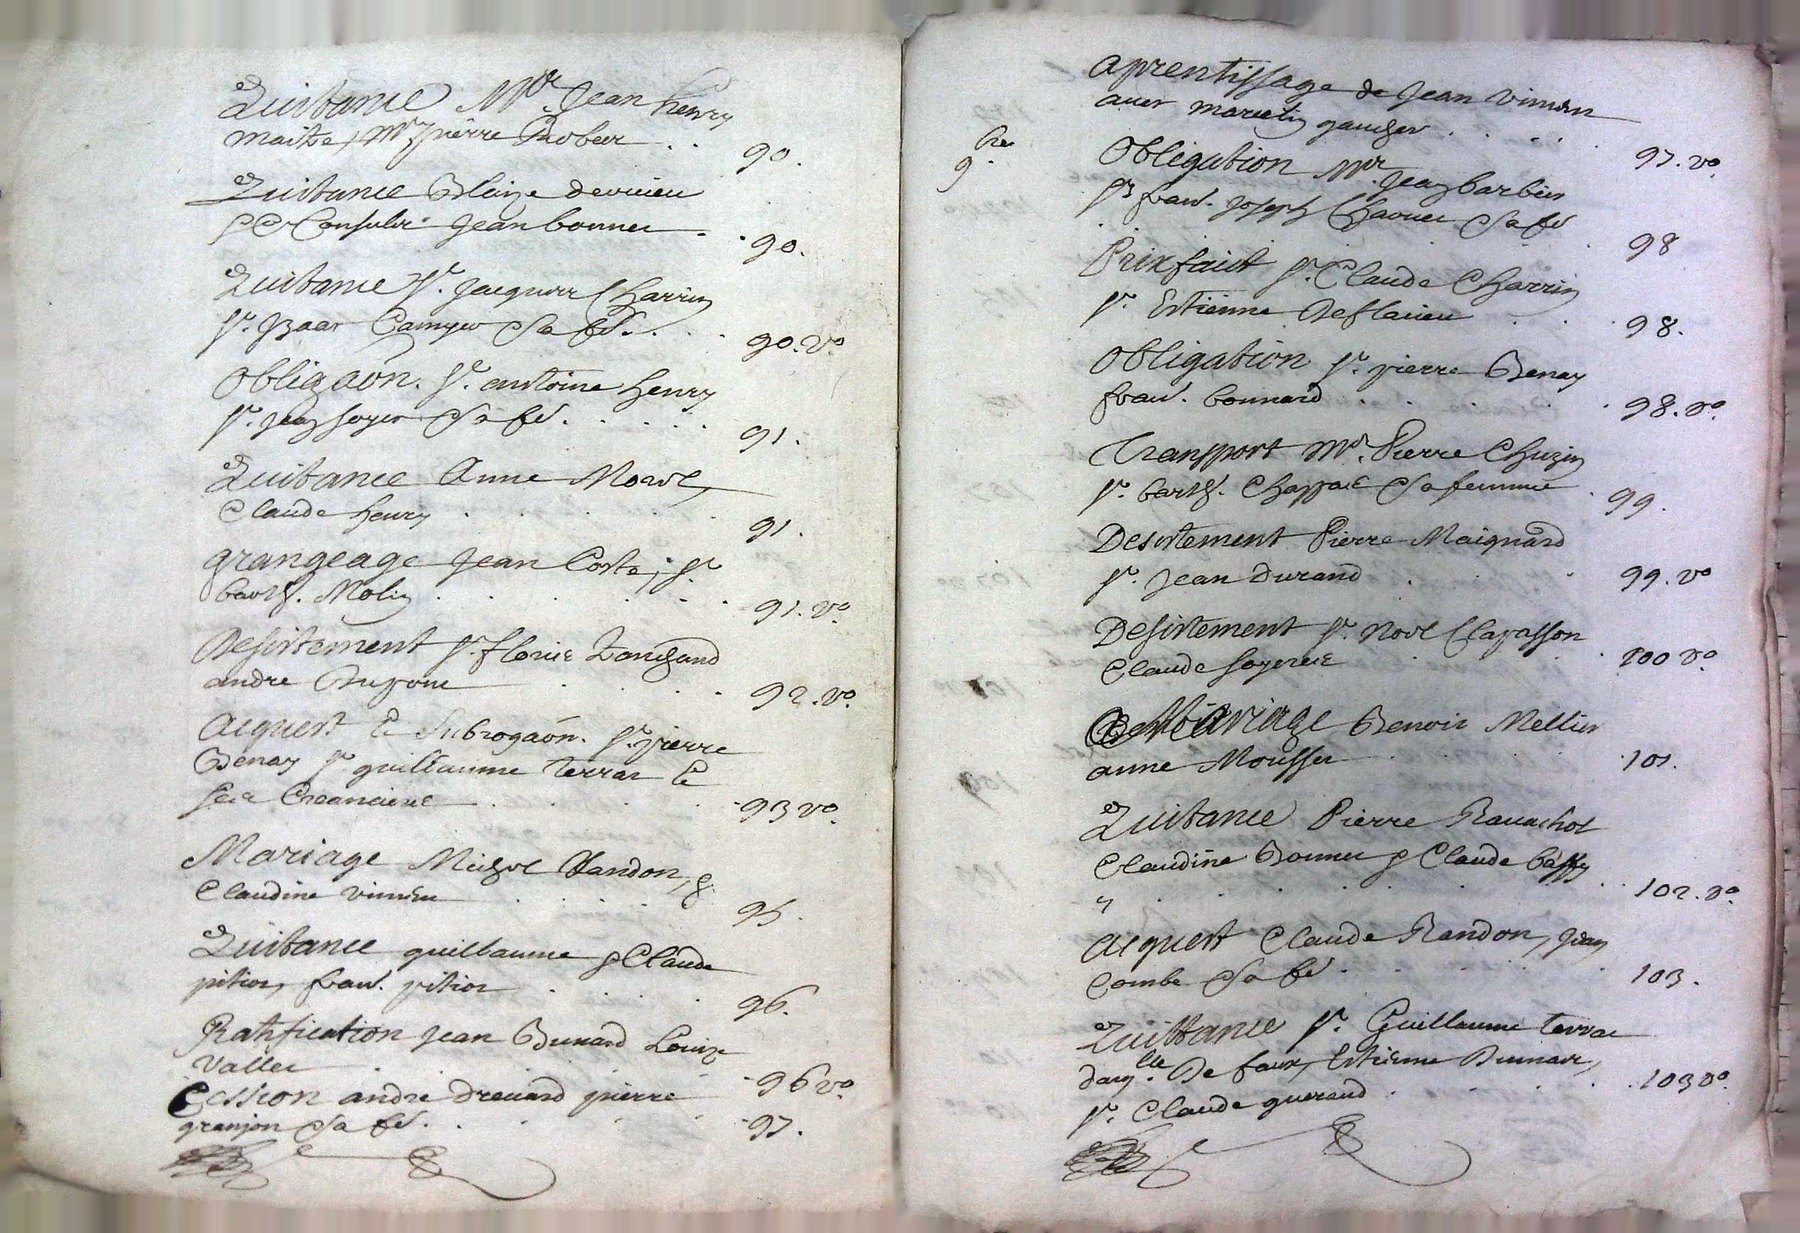 Quittance Mre Jean henry
maitre, Mr pierre Robeur . . 90.
Quittance Blaize
Consulz Jean bonnet . . 90.
Quittance Sr. Jacques Charrin
Sr. Izaac sa fe. . . 90. vo.
Obligaôn. Sr. antoine henry
Sr. Jean soyer sa fe. . . . . . 91.
Quittance Anne Morel,
Claude henry . . . . . 91.
grangeage Jean Coste, Sr
barth. Molin . . . . . . 91. vo.
Desistement Sr. fleurie
andre Dupont . . . . 92. vo.
acquest & subrogaôn. Sr. pierre
Benay Sr guillaume terrat &
ses Creanciers . . . . 93 vo.
Mariage Michel Randon, &
Claudine vincen . . . . . 95.
Quittance guillaume & Claude
pitiot, fran. pitiot . . . . 96.
Ratification Jean Bunard Louize
Vallet . . . . 96 vo.
Cession andré Drevard pierre
granjon sa fe. . . . . 97.
aprentissage de Jean vincen
avec marcelin gaucher . . . . . 97. vo.
9.
Obligation Mre. Jean barbier
Sr fran. Joseph Chavner sa fe . 98
Prixfaict Sr. Claude Charrin
Sr. Estienne Deflavieu . . . 98.
Obligation Sr. pierre Benay
fran. bonnard . . . . . . 98. vo.
Transport Md. Pierre Chuzin
Sr. barth. sa femme . 99.
Desistement Pierre Maignard
Sr. Jean Durand . . . 99. vo
Desistement Sr. Noel Clapasson
Claude . . . 100 vo.
Mariage Benoir Mellier
anne Mousser . . . . . 101.
Quittance Pierre Ravachol
Claudine Bonnet & Claude
. . . . . . . 102. vo.
acquest Claude Randon, Jean
Combe sa fe . . . . . . . 103.
Quittance Sr. Guillaume terrat
damlle. De faux, Estienne Dumas,
Sr. Claude gueraud . . . . . . 103 vo.